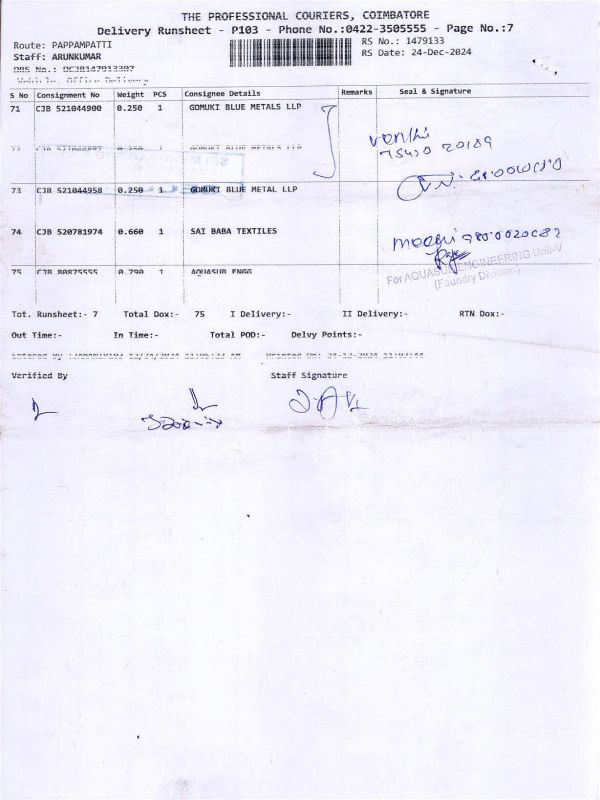 THE PROFESSIONAL COURIERS, COIMBATORE
Delivery Runsheet - P103 - Phone No.:0422-3505555 - Page No.:7
Route: PAPPAMPATTI RS No.: 1479133
Staff: ARUNKUMAR RS Date: 24-Dec-2024
S No Consignment No Weight PCS Consignee Details Remarks Seal & Signature
71 CJB 521044900 0.250 1 GOMUKI BLUE METALS LLP
GOMUKI BLUE METALS LLP
73 CJB 521044958 0.250 1 GOMUKI BLUE METAL LLP
74 CJB 520781974 0.660 1 SAI BABA TEXTILES
75 CJB 80875555 0.790 1 AQUASUB ENGG
For AQUASUB ENGINEERING Unit-V
(Foundry Division)
Tot. Runsheet:- 7 Total Dox:- 75 I Delivery:- II Delivery:- RTN Dox:-
Out Time:- In Time:- Total POD:- Delvy Points:-
Verified By Staff Signature